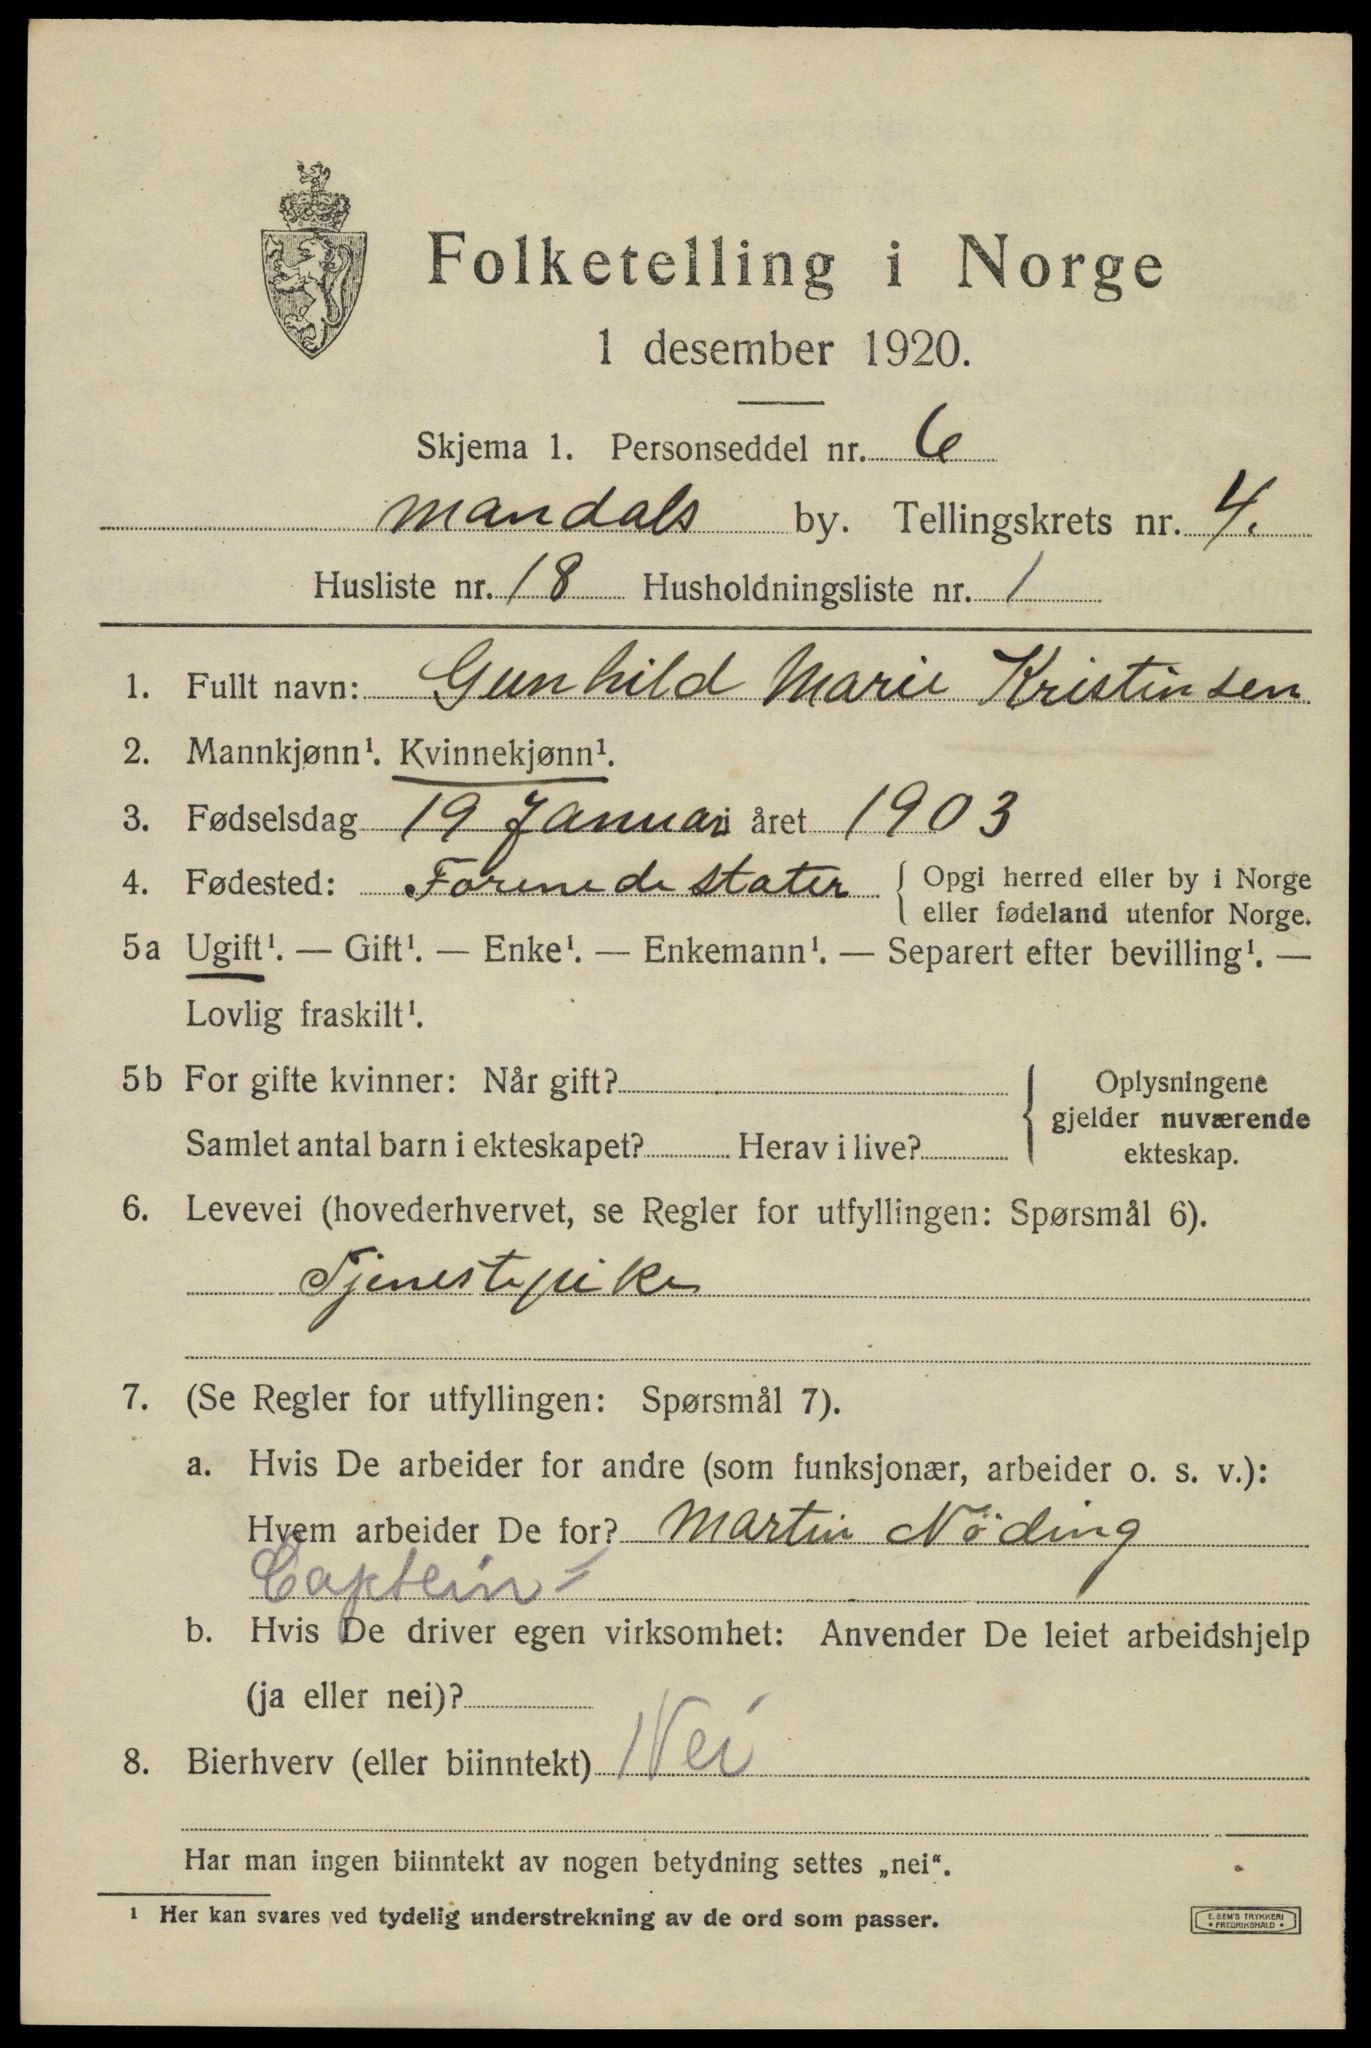 Folketelling i Norge
1 desember 1920.
Skjema 1. Personseddel nr. 6
Mandals by. Tellingskrets nr. 4.
Husliste nr. 18 Husholdningsliste nr. 1
1. Fullt navn: Gunhild Marie Kristinsen
2. Mannkjønn¹. Kvinnekjønn¹.
3. Fødselsdag 19 Januari året 1903
4. Fødested: Forenede stater { Opgi herred eller by i Norge
eller fødeland utenfor Norge.
5a Ugift¹. — Gift¹. — Enke¹. — Enkemann¹. — Separert efter bevilling¹. —
Lovlig fraskilt¹.
5b For gifte kvinner: Når gift? } Oplysningene
gjelder nuværende
Samlet antal barn i ekteskapet? Herav i live? ekteskap.
6. Levevei (hovederhvervet, se Regler for utfyllingen: Spørsmål 6).
Tjenestepike
7. (Se Regler for utfyllingen: Spørsmål 7).
a. Hvis De arbeider for andre (som funksjonær, arbeider o. s. v.):
Hvem arbeider De for? Martin Nöding
Captein
b. Hvis De driver egen virksomhet: Anvender De leiet arbeidshjelp
(ja eller nei)?
8. Bierhverv (eller biinntekt) Nei
Har man ingen biinntekt av nogen betydning settes „nei“.
¹ Her kan svares ved tydelig understrekning av de ord som passer.
E. SEM'S TRYKKERI
• FREDRIKSHALD •